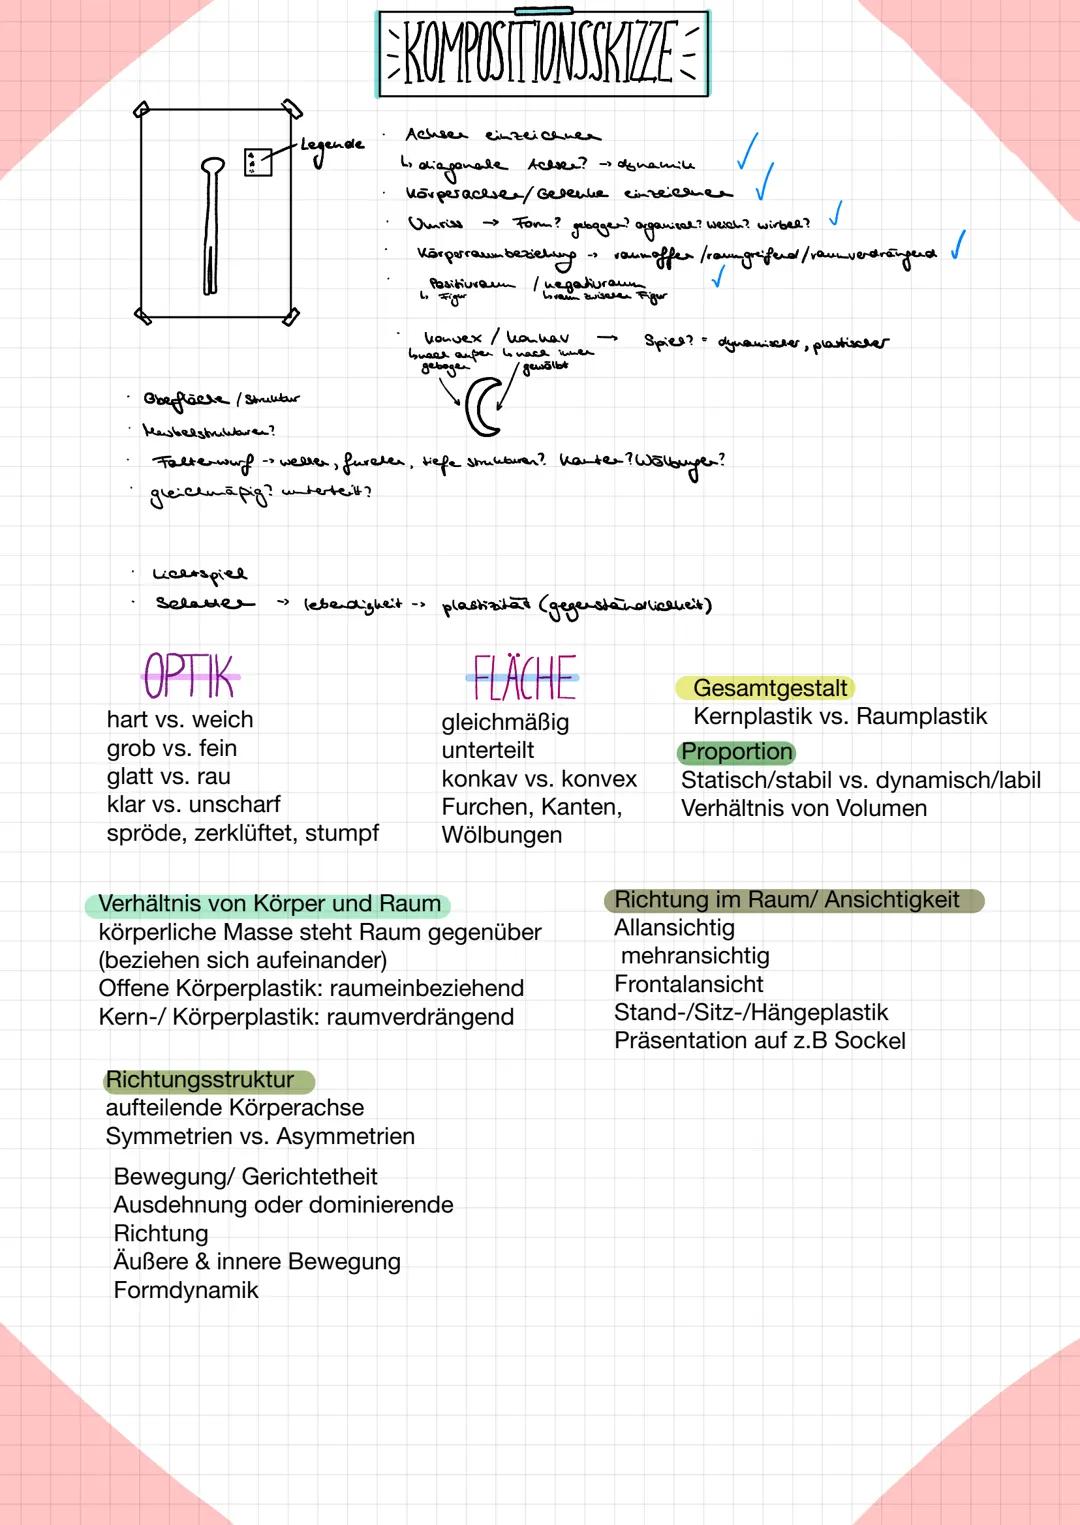 KOMPOSITIONSSKIZZE
Legende
· Achsen einzeichnen
↳ diagonale Achse? → dynamik
· Körperachsen/Gelenke einzeichnen
· Umriss → Form? gebogen? organisch? weich? wirbel?
· Körperraumbeziehung → raumoffen/raumgreifend/raumverdrängend
· Positivraum / negativraum
↳ Figur ↳ raum zwischen Figur
· konvex / konkav → Spiel? = dynamischer, plastischer
↳ nach außen ↳ nach innen
gebogen / gewölbt
· Oberfläche / Struktur
· Muskelstrukturen?
· Faltenwurf → wellen, furchen, tiefe strukturen? Kanten? Wölbungen?
· gleichmäßig? unterteilt?
· Lichtspiel
· Schatten → lebendigkeit → plastizität (gegenständlichkeit)
OPTIK
hart vs. weich
grob vs. fein
glatt vs. rau
klar vs. unscharf
spröde, zerklüftet, stumpf
FLÄCHE
gleichmäßig
unterteilt
konkav vs. konvex
Furchen, Kanten,
Wölbungen
Gesamtgestalt
Kernplastik vs. Raumplastik
Proportion
Statisch/stabil vs. dynamisch/labil
Verhältnis von Volumen
Verhältnis von Körper und Raum
körperliche Masse steht Raum gegenüber
(beziehen sich aufeinander)
Offene Körperplastik: raumeinbeziehend
Kern-/ Körperplastik: raumverdrängend
Richtung im Raum/ Ansichtigkeit
Allansichtig
mehransichtig
Frontalansicht
Stand-/Sitz-/Hängeplastik
Präsentation auf z.B Sockel
Richtungsstruktur
aufteilende Körperachse
Symmetrien vs. Asymmetrien
Bewegung/ Gerichtetheit
Ausdehnung oder dominierende
Richtung
Äußere & innere Bewegung
Formdynamik